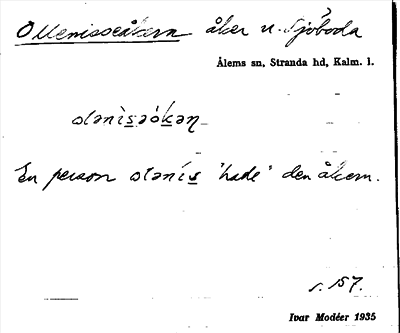 Ollenisseåkern åker u. Sjöboda
Ålems sn, Stranda hd, Kalm. l.
En person "hade" den åkern.
s. 157.
Ivar Modéer 1935